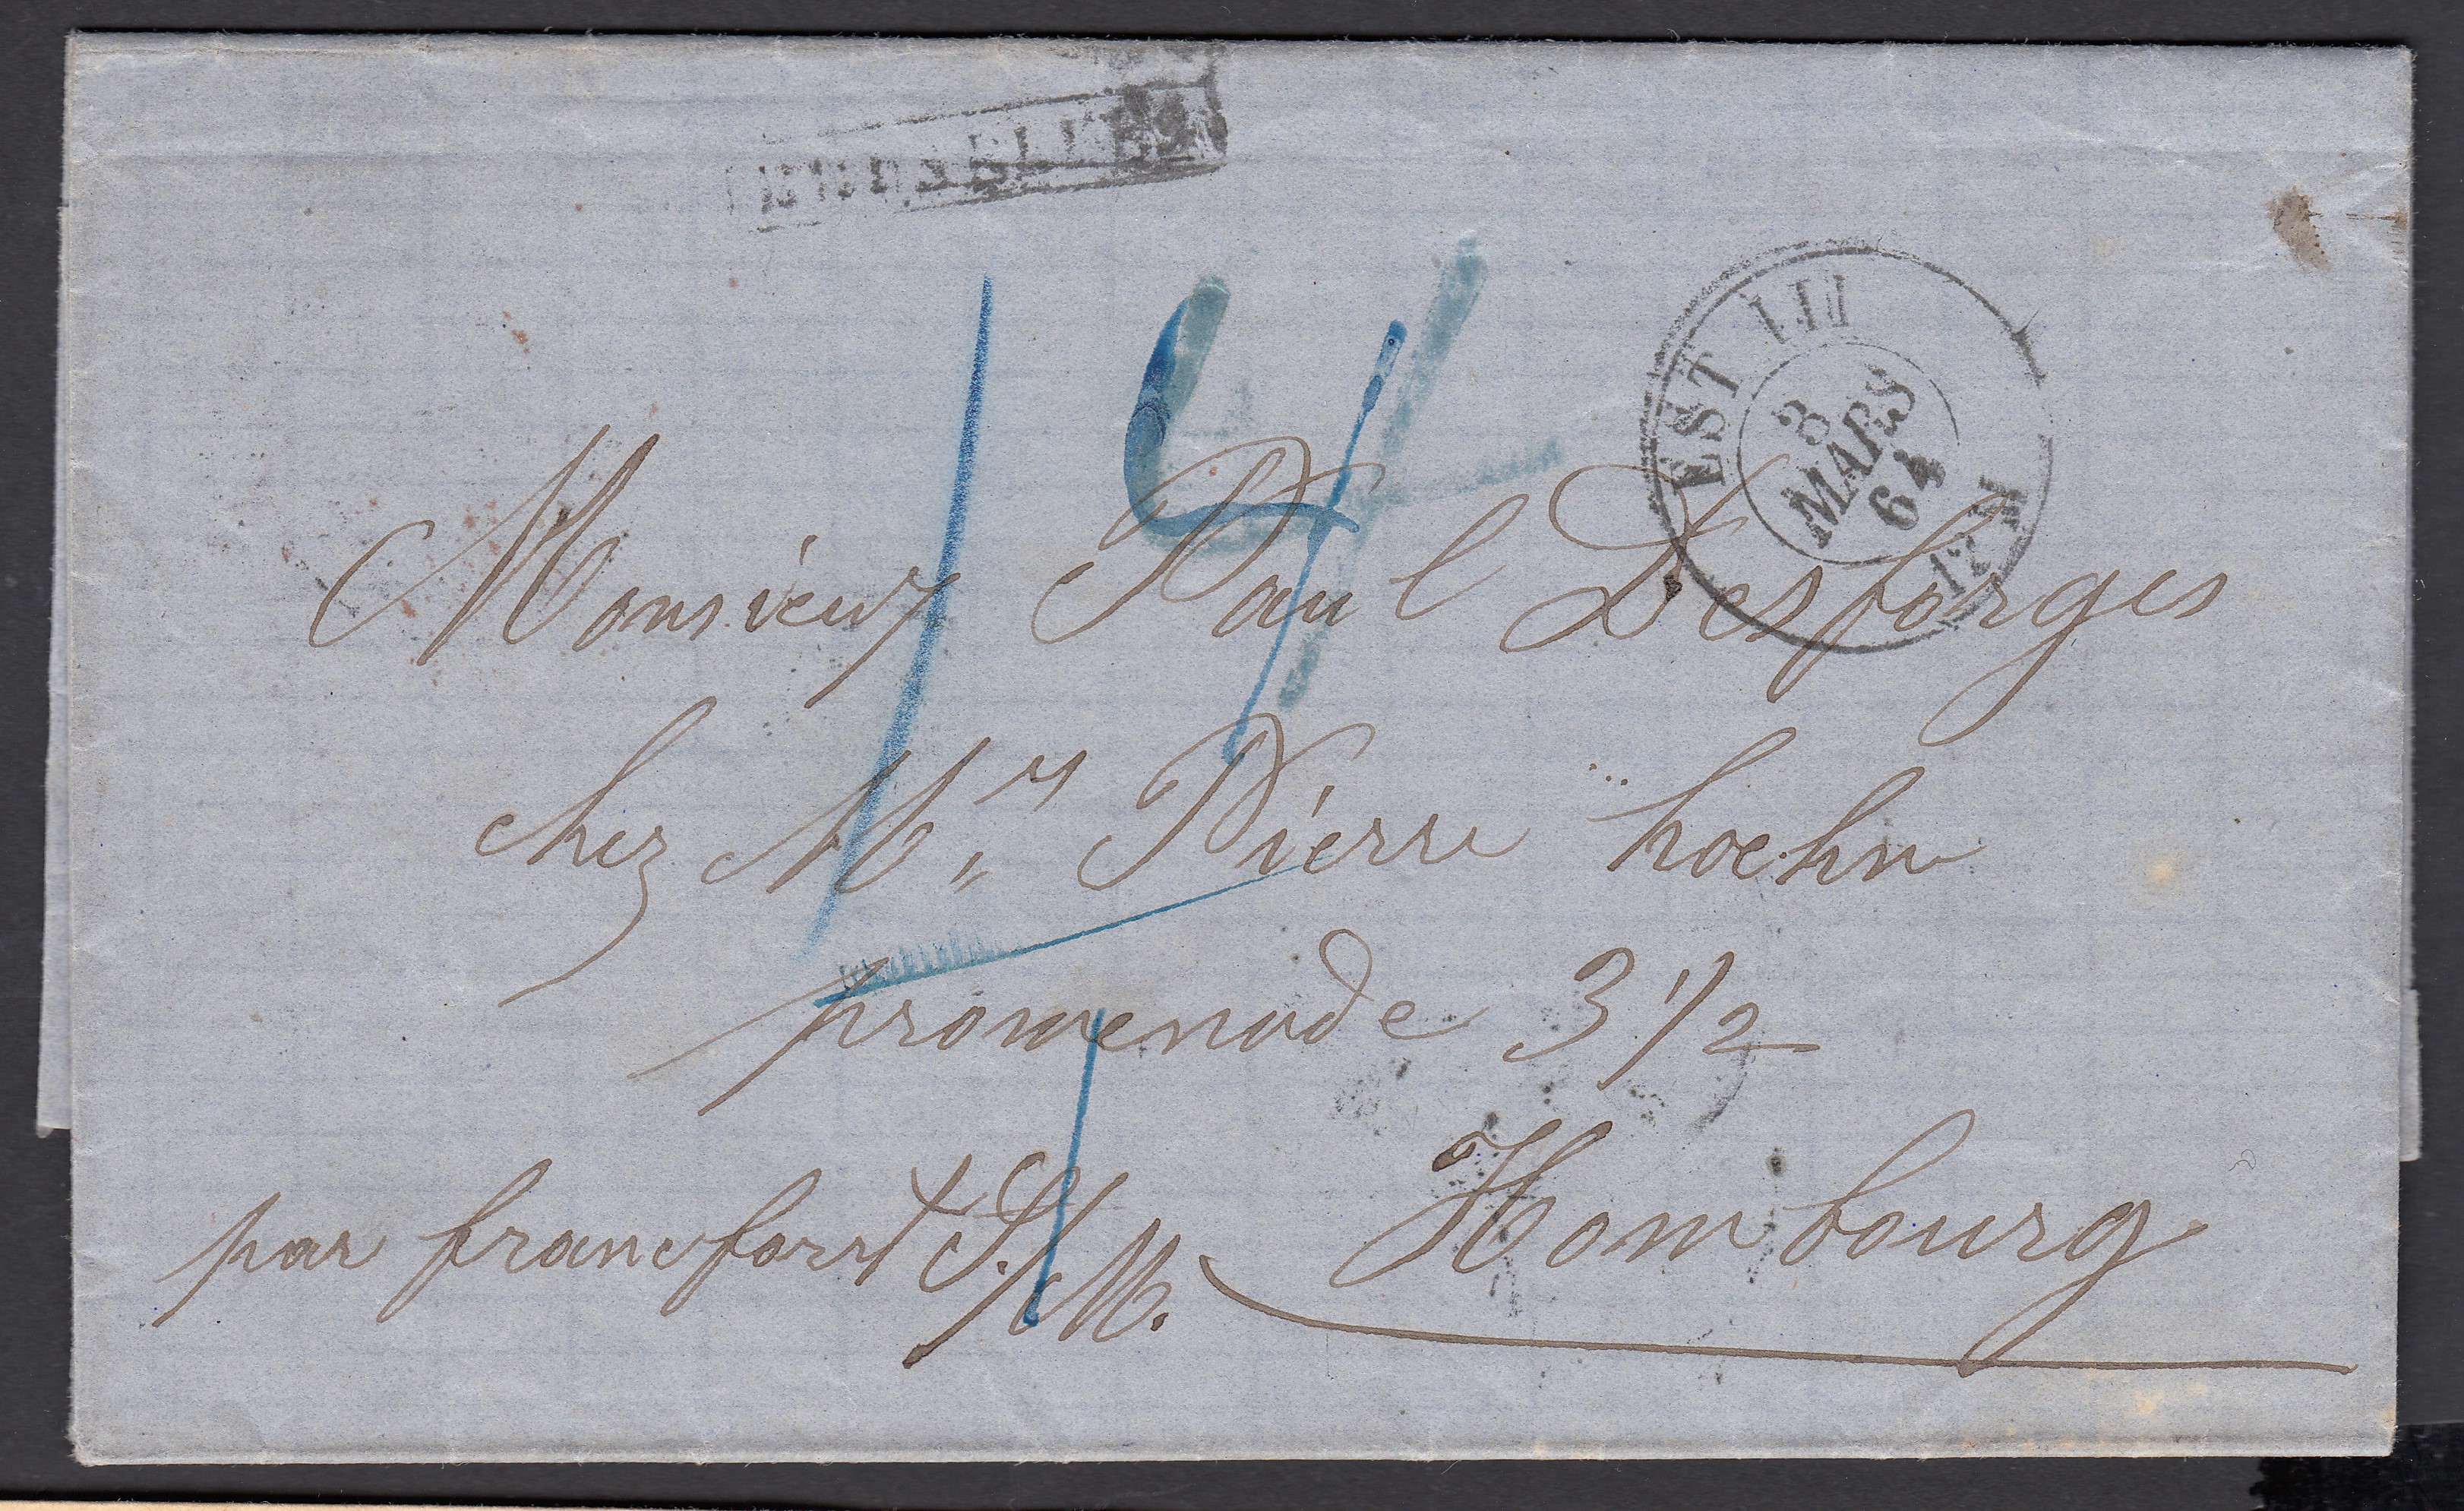 EST III
8
MARS
64
14
Monsieur Paul Desforges
chez Mr Pierre hoehn
promenade 3 1/2
par francfort S/M. Hombourg